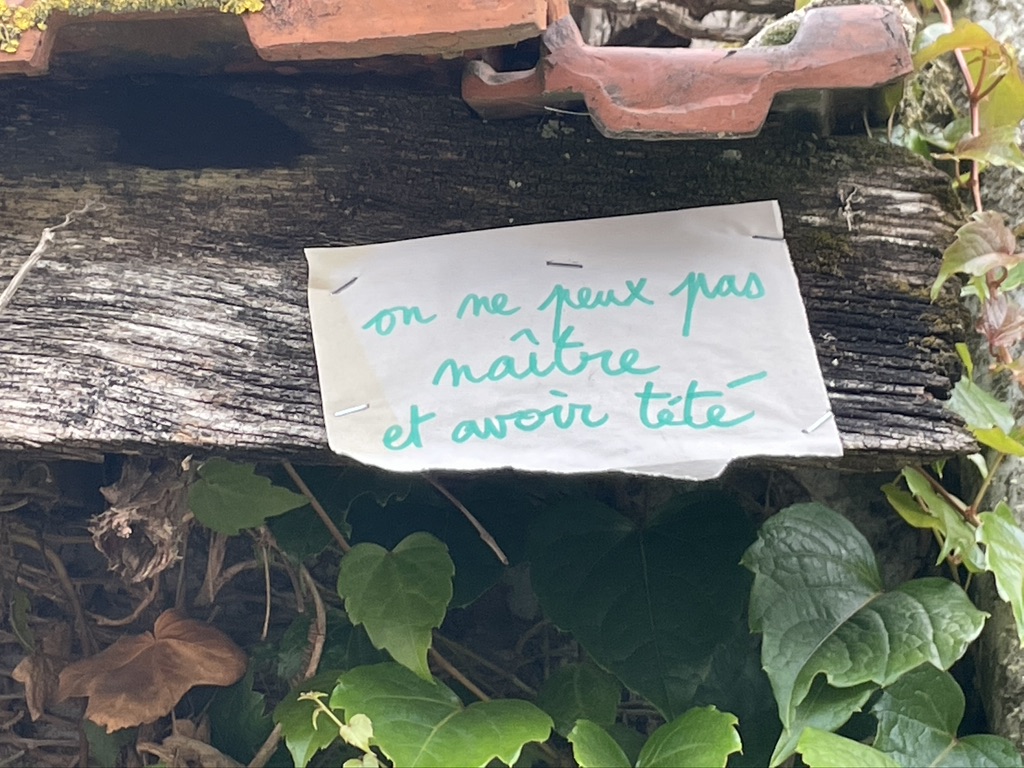 on ne peux pas
naître
et avoir tété